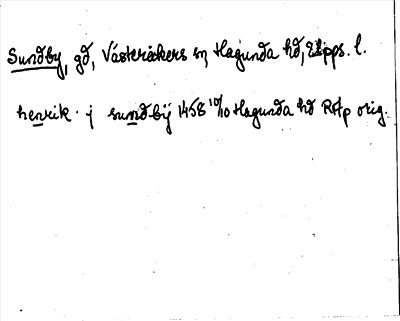 Sundby, gd, Västeråkers sn, Hagunda hd, Upps. l.
henrik · j sundbij 1458 10/10 Hagunda hd RAp orig.